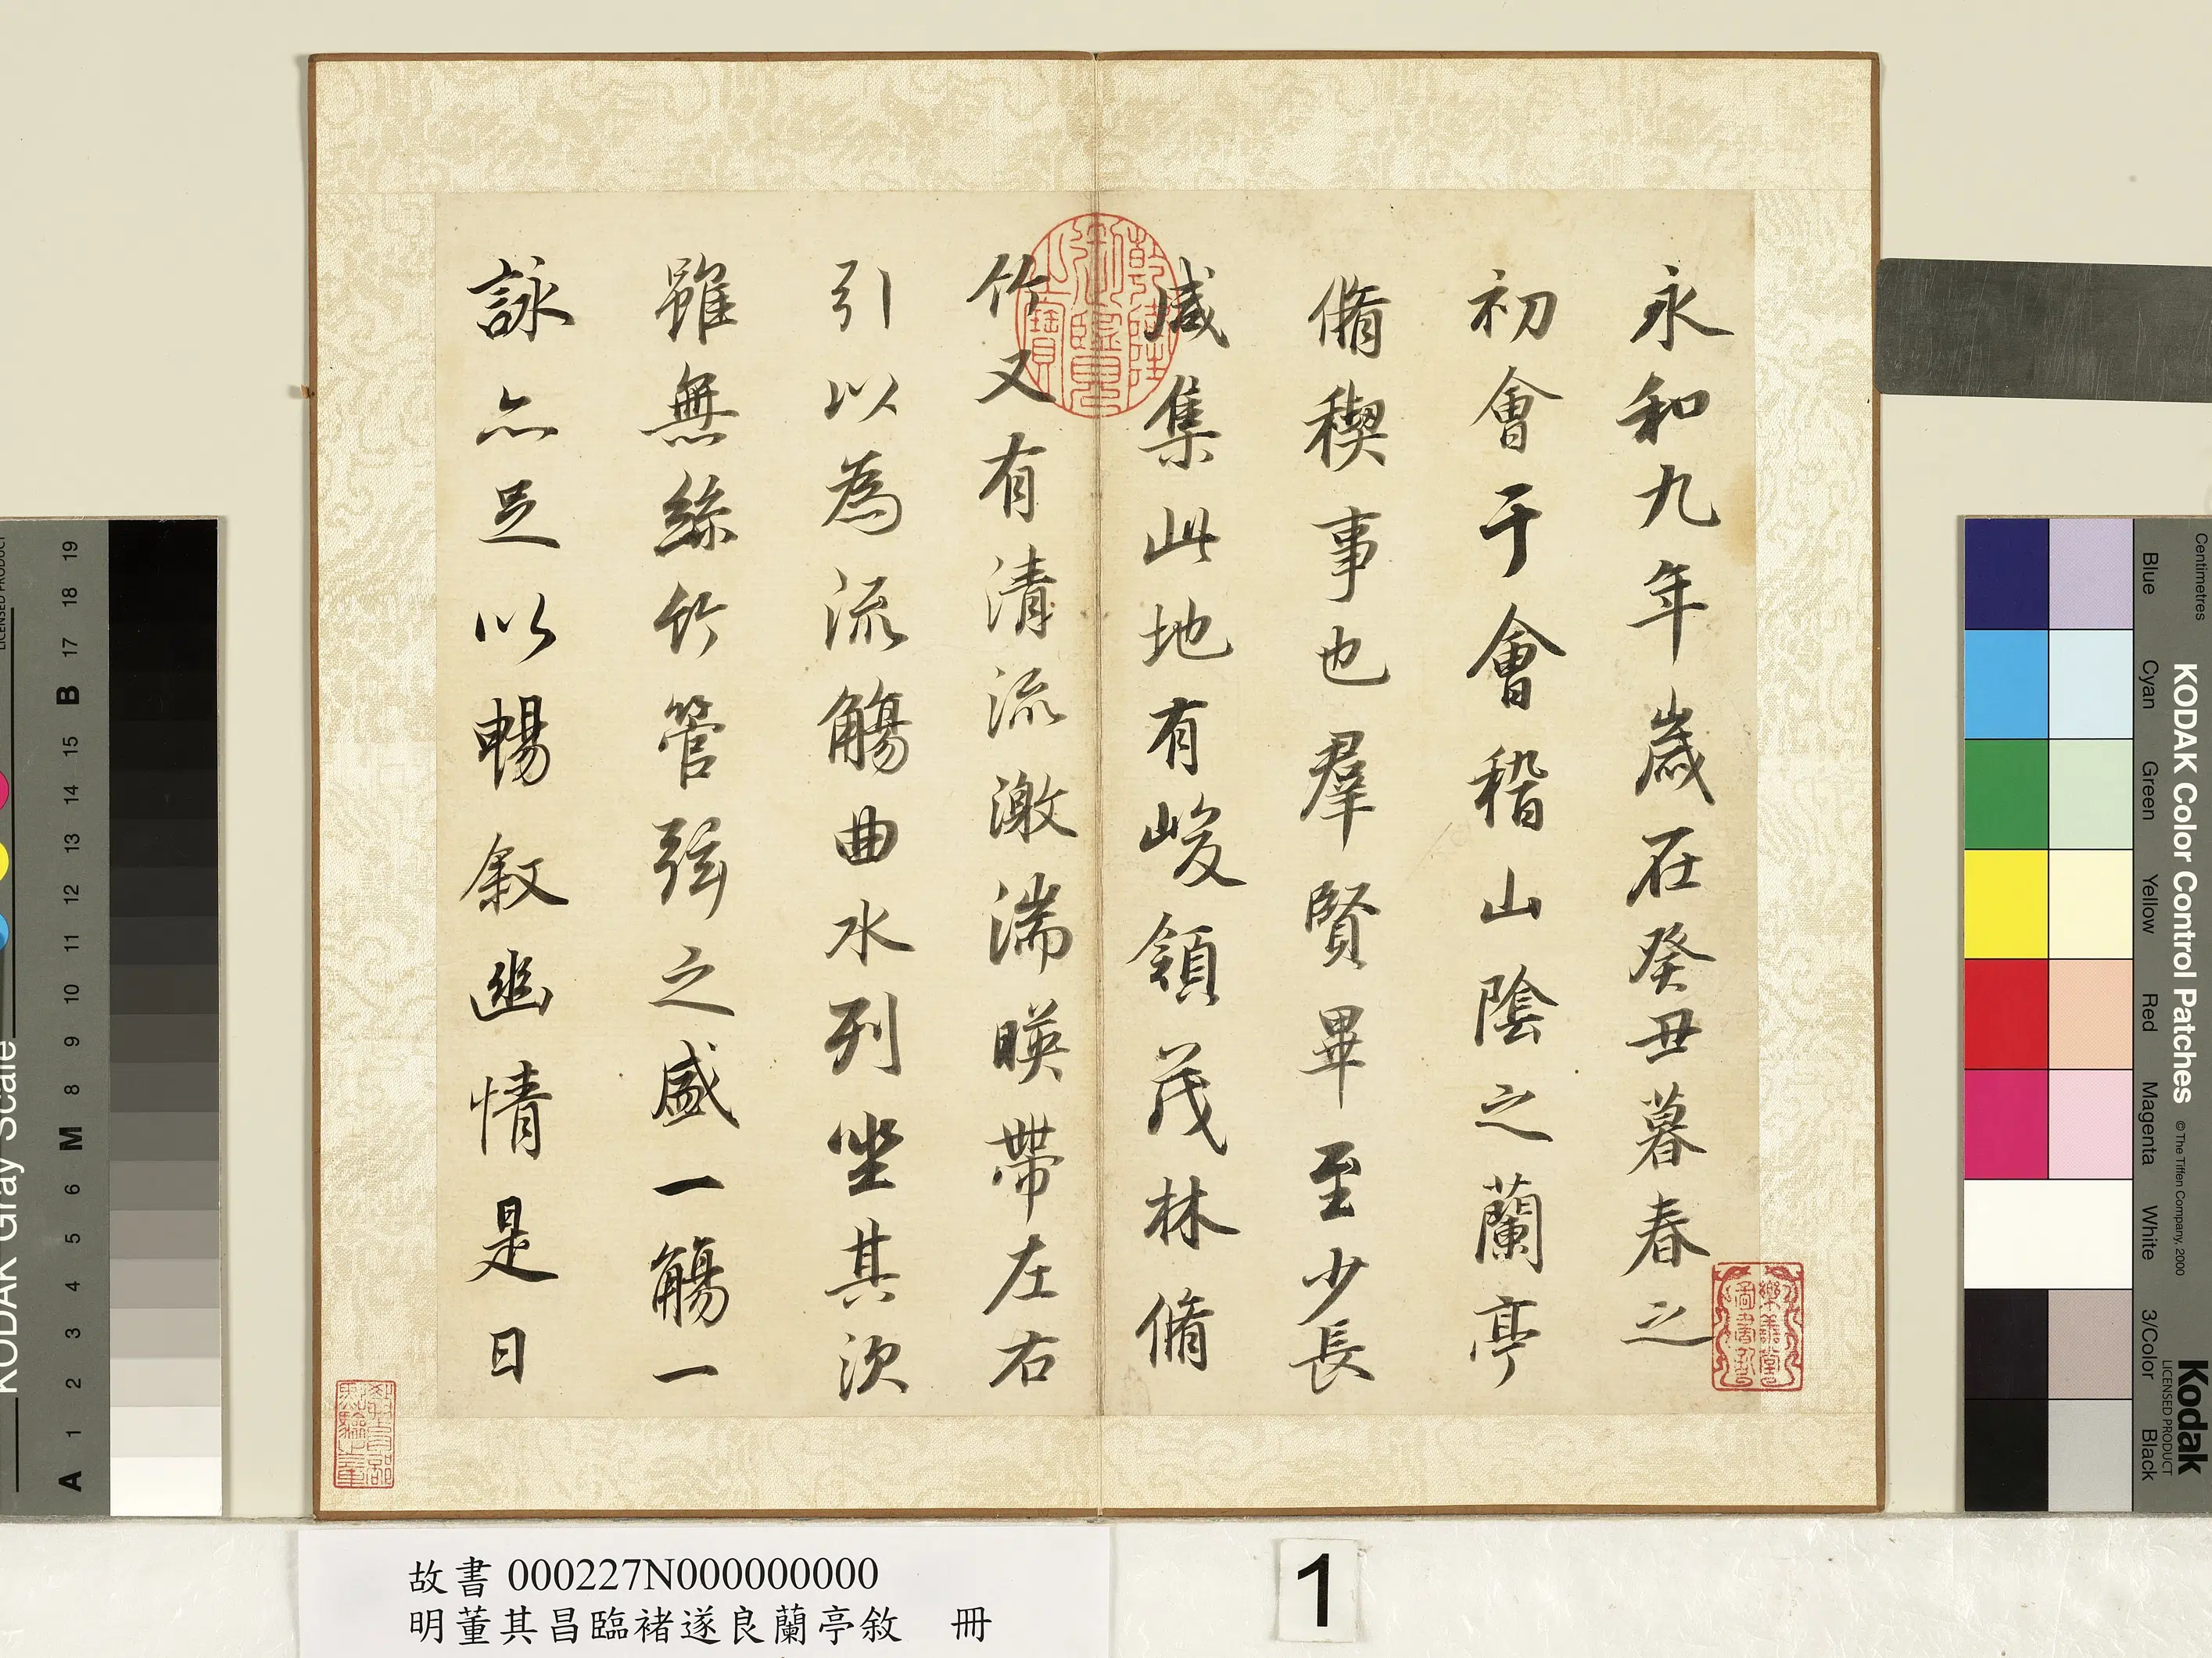 永和九年歲在癸丑暮春之
初會于會稽山陰之蘭亭
脩稧事也羣賢畢至少長
咸集此地有峻領茂林脩
竹又有清流激湍暎帶左右
引以為流觴曲水列坐其次
雖無絲竹管弦之盛一觴一
詠亦足以暢叙幽情是日
乾隆御覽之寶
故書 000227N000000000
明董其昌臨褚遂良蘭亭敘 冊
1
KODAK Gray Scale
LICENSED PRODUCT
A 1 2 3 4 5 6 M 8 9 10 11 12 13 14 15 B 17 18 19
KODAK Color Control Patches
© The Tiffen Company, 2000
Kodak
LICENSED PRODUCT
Centimetres
Blue Cyan Green Yellow Red Magenta White 3/Color Black